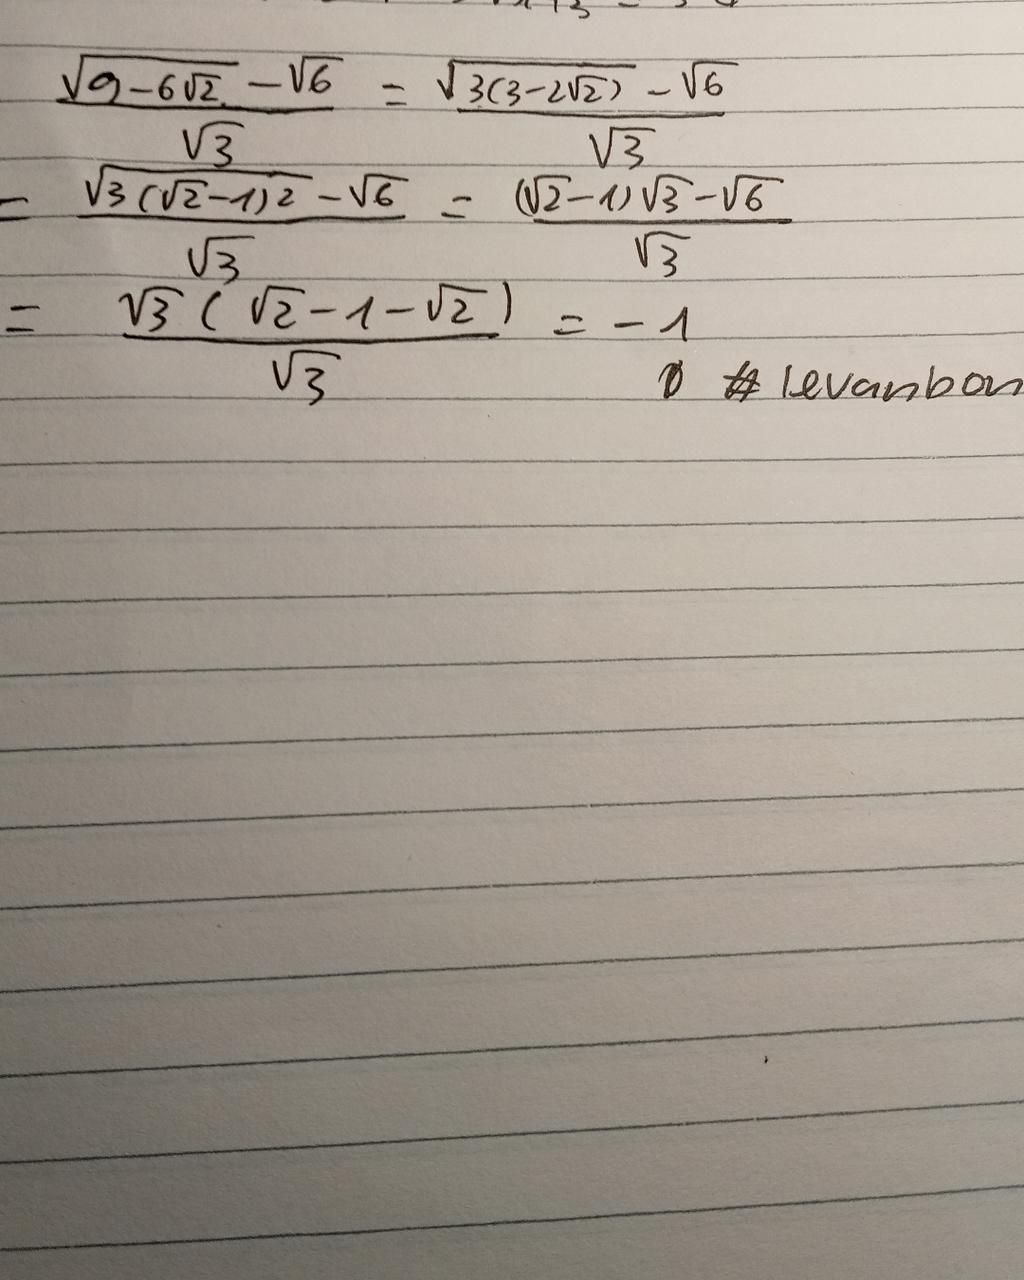 √(9-6√2) - √6 / √3 = √(3(3-2√2)) - √6 / √3
= √(3(√2-1)2) - √6 / √3 = (√2-1)√3 - √6 / √3
= √3(√2-1-√2) / √3 = -1
# levanbon